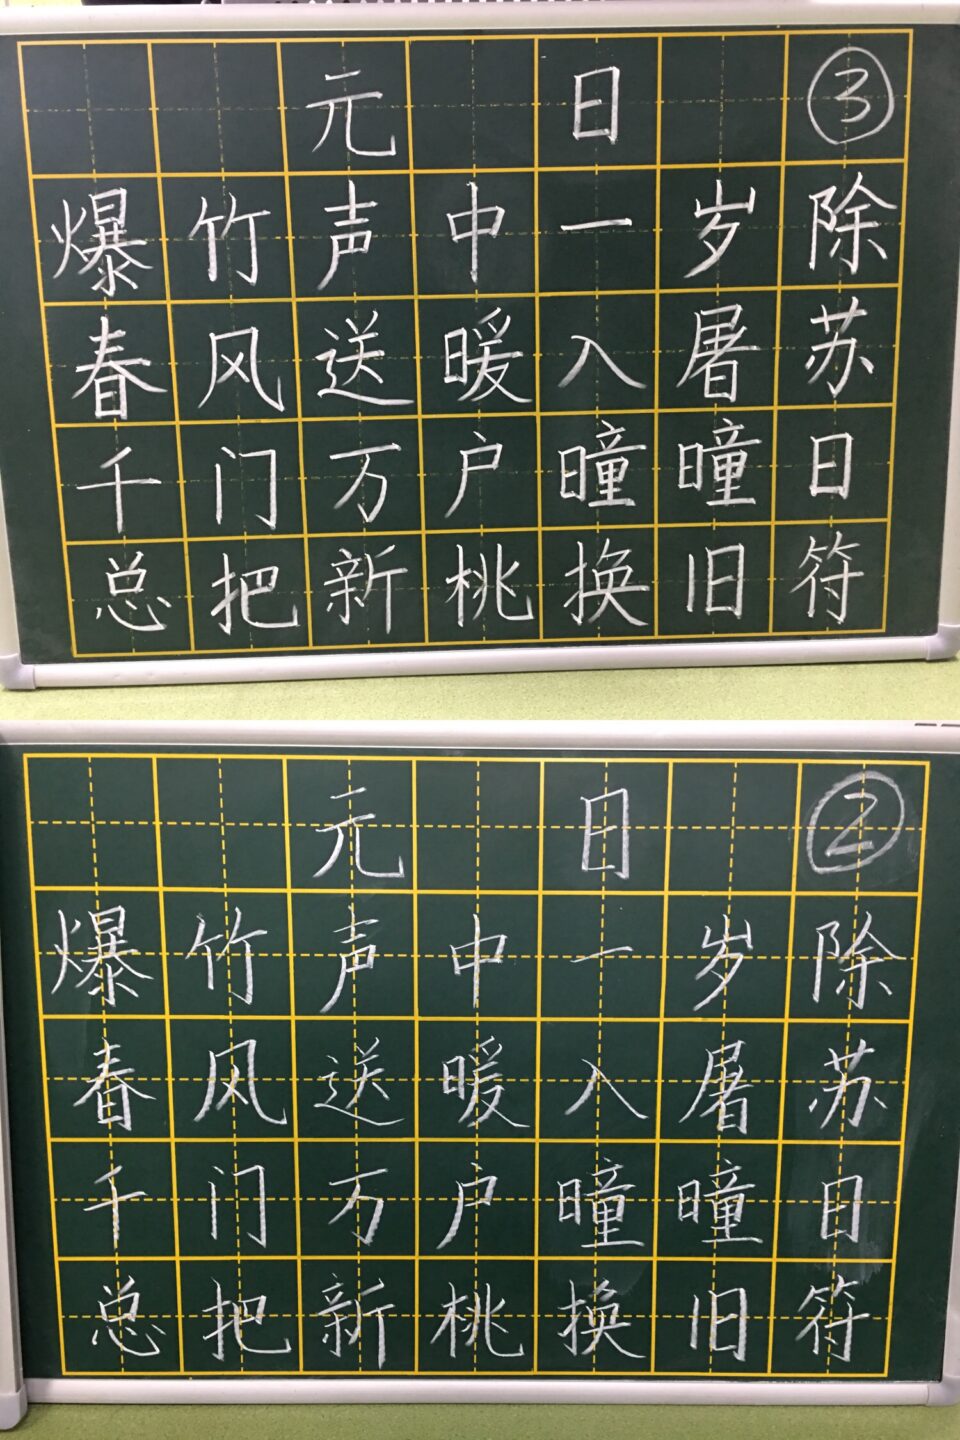 元日 ③
爆竹声中一岁除
春风送暖入屠苏
千门万户曈曈日
总把新桃换旧符
元日 ②
爆竹声中一岁除
春风送暖入屠苏
千门万户曈曈日
总把新桃换旧符